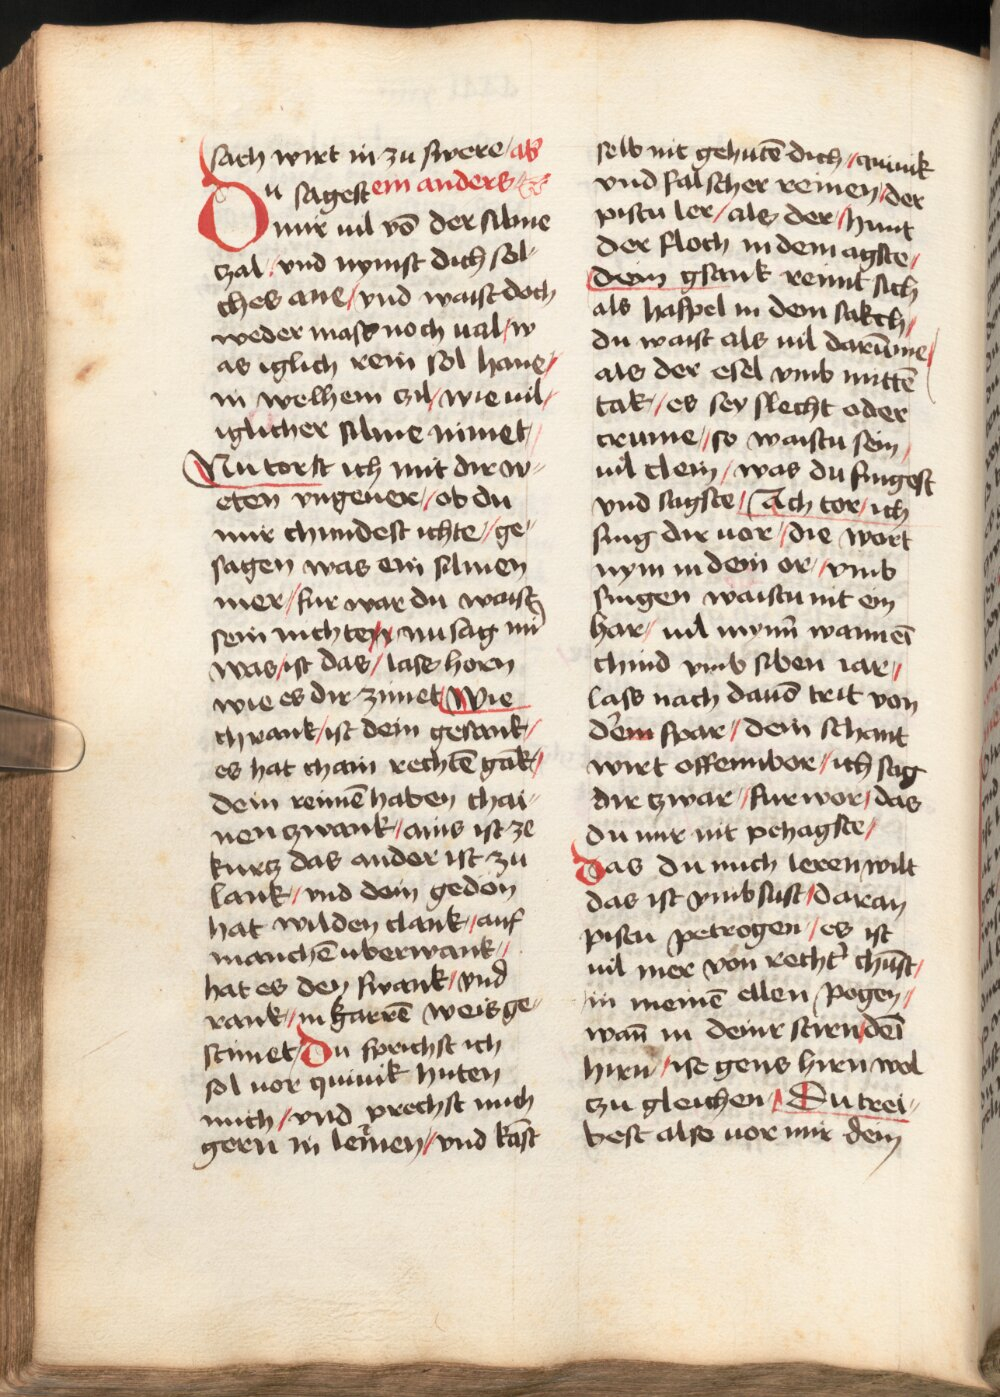 sach wirt in zu swere / ab
Du sagest ein anders
mir uil vō der silme
czal / vnd nymst dich sol-
ches ane / vnd waist doch
weder mass noch ual / w
as iglich rein sol hane /
in welhem czil / wie uil /
iglicher silme nimet /
Nu torst ich mit dir w-
eten vngeuer / ob du
mir chundest ichte / ge-
sagen was ein silmen
mer / fur war du waist
sein nichte / nu sag mir
was / ist das / lass horn
wie es dir zimet / Wie
chrank / ist dein gesank /
es hat chain rechtē gāk /
dein reimē haben chai-
nen zwank / ains ist ze
kurcz das ander ist zu
lank / vnd dein gedon
hat wilden clank / auf
manchē uberwank /
hat es den swank / vnd
rank / in garrē weis ge-
stimet / Du sprichst ich
sol uor quinik huten
mich / vnd prechst mich
gern in lernen / vnd kāst
selb nit gehutē dich / quinik
vnd falscher reimen / der
pistu ler / als der / hunt
der floch in dem agste /
dein gsank reimt sich
als haspel in dem sakch /
du waist als uil darūme /
als der esel vmb mittē
tak / es sey slecht oder
crume / so waistu sein /
uil clein / was du singest
vnd sagste / Ach tor / ich
sing dir uor / die wort
nym in dein or / vmb
singen waistu nit ein
har / uil mynn̄ wann eī
chind vmb siben iar /
lass nach dauō trit von
dem spar / dem schant
wirt offennbor / ich sag
dir zwar / fur wor / das
du mir nit pehagste /
das du mich leren wilt
das ist vmb sust / daran
pistu petrogen / es ist
uil mer von rechtr chūst /
in meinē ellen pogen /
wan̄ in deinr stiren / deī
hirn / ist gens hirn wol
czu gleichen / Du trei-
best also uor mir dein